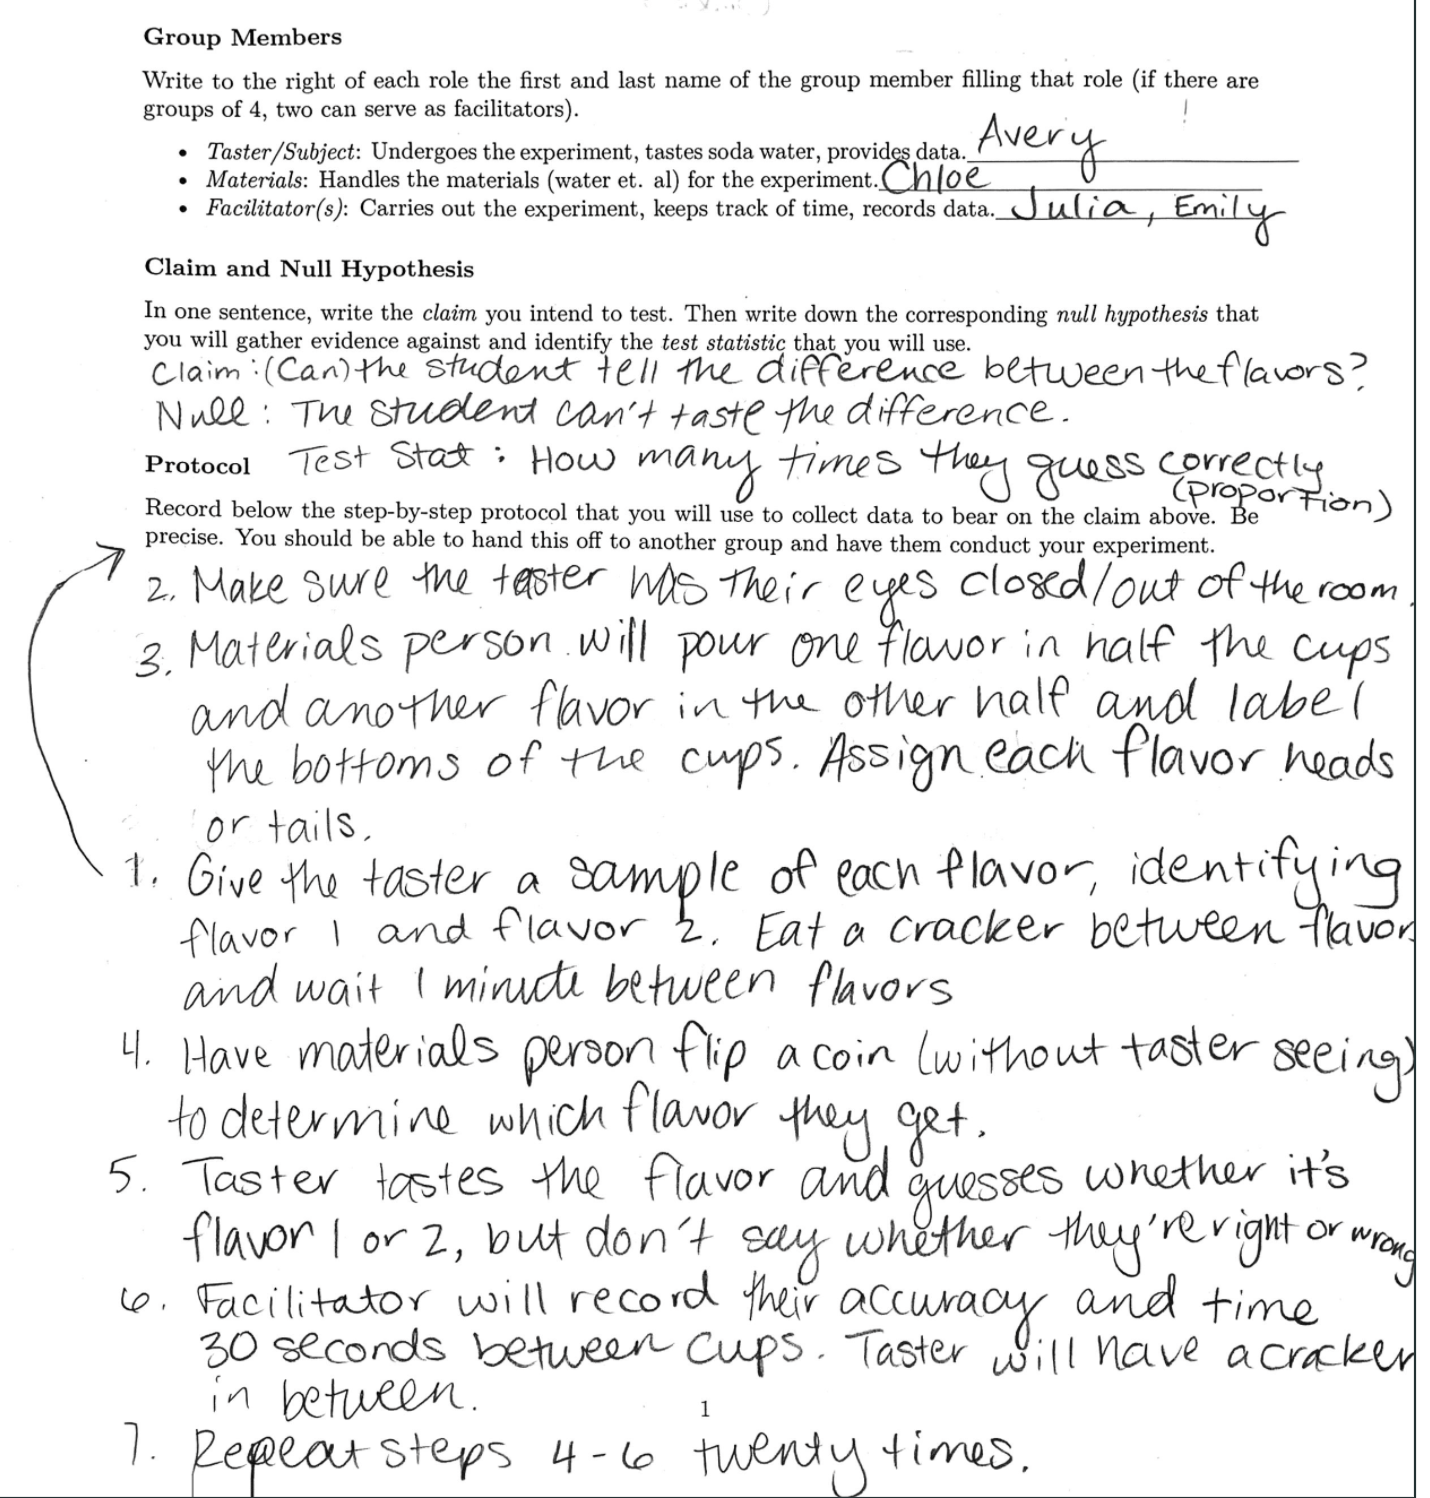 Group Members
Write to the right of each role the first and last name of the group member filling that role (if there are
groups of 4, two can serve as facilitators).
• Taster/Subject: Undergoes the experiment, tastes soda water, provides data. Avery
• Materials: Handles the materials (water et. al) for the experiment. Chloe
• Facilitator(s): Carries out the experiment, keeps track of time, records data. Julia, Emily
Claim and Null Hypothesis
In one sentence, write the claim you intend to test. Then write down the corresponding null hypothesis that
you will gather evidence against and identify the test statistic that you will use.
Claim: (Can) the student tell the difference between the flavors?
Null: The student can't taste the difference.
Protocol Test Stat: How many times they guess correctly
(proportion)
Record below the step-by-step protocol that you will use to collect data to bear on the claim above. Be
precise. You should be able to hand this off to another group and have them conduct your experiment.
2. Make sure the taster has their eyes closed/out of the room.
3. Materials person will pour one flavor in half the cups
and another flavor in the other half and label
the bottoms of the cups. Assign each flavor heads
or tails.
1. Give the taster a sample of each flavor, identifying
flavor 1 and flavor 2. Eat a cracker between flavor
and wait 1 minute between flavors
4. Have materials person flip a coin (without taster seeing)
to determine which flavor they get.
5. Taster tastes the flavor and guesses whether it's
flavor 1 or 2, but don't say whether they're right or wrong
6. Facilitator will record their accuracy and time
30 seconds between cups. Taster will have a cracker
in between.
1
7. Repeat steps 4-6 twenty times.